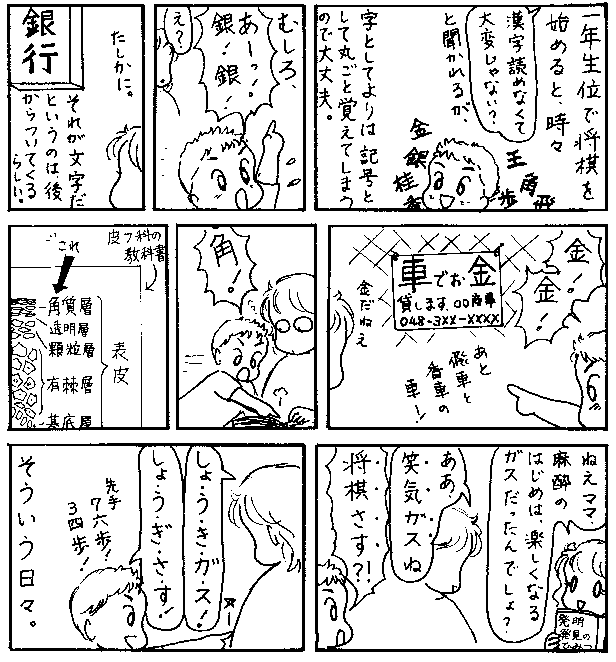 一年生位で将棋を
始めると、時々
漢字読めなくて
大変じゃない?
と聞かれるが、
王
角
飛
歩
金
銀
桂
香
字としてよりは記号と
して丸ごと覚えてしまう
ので大丈夫。
むしろ、
あーっ!
銀!銀!
え?
たしかに。
銀行
それが文字だ
というのは後
からついてくる
らしい。
金!
金!
車でお金
貸します。○○商事
048-3XX-XXXX
あと
飛車と
香車の
車ー!
金だねえ
角!
皮フ科の
教科書
これ
角質層
透明層
顆粒層
有棘層
基底層
表皮
ねえママ
麻酔の
はじめは、楽しくなる
ガスだったんでしょ?
発明
発見の
ああ
笑気ガスね
将棋さす?!
しょ・う・き・ガ・ス!
しょ・う・ぎ・さ・す!
先手
7六歩!
3四歩!
そういう日々。